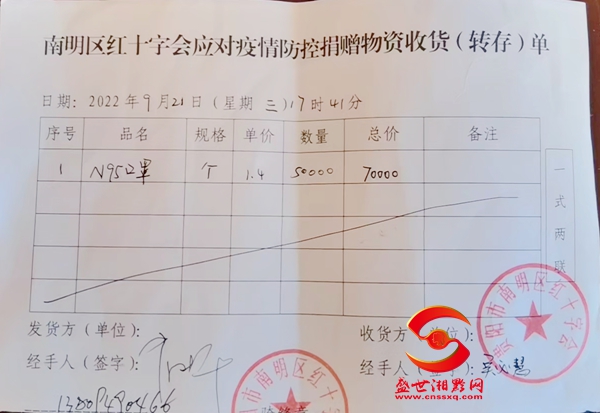 南明区红十字会应对疫情防控捐赠物资收货（转存）单
日期：2022年9月21日（星期三）17时41分
序号 品名 规格 单价 数量 总价 备注
1 N95口罩 个 1.4 50000 70000
一式两联
发货方（单位）： 收货方（单位）：
经手人（签字）： 经手人（签字）：
贵阳市南明区红十字会
市南明区红十字
盛世湘黔网
www.cnssxq.com